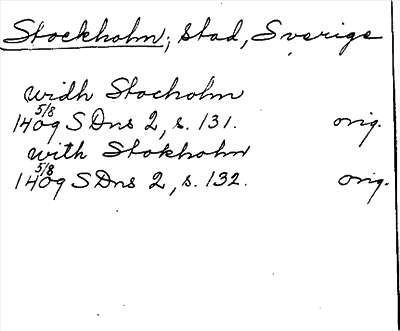 Stockholm, stad, Sverige
widh Stocholm
1409 5/8 SDns 2, s. 131. orig.
with Stokholm
1409 5/8 SDns 2, s. 132. orig.